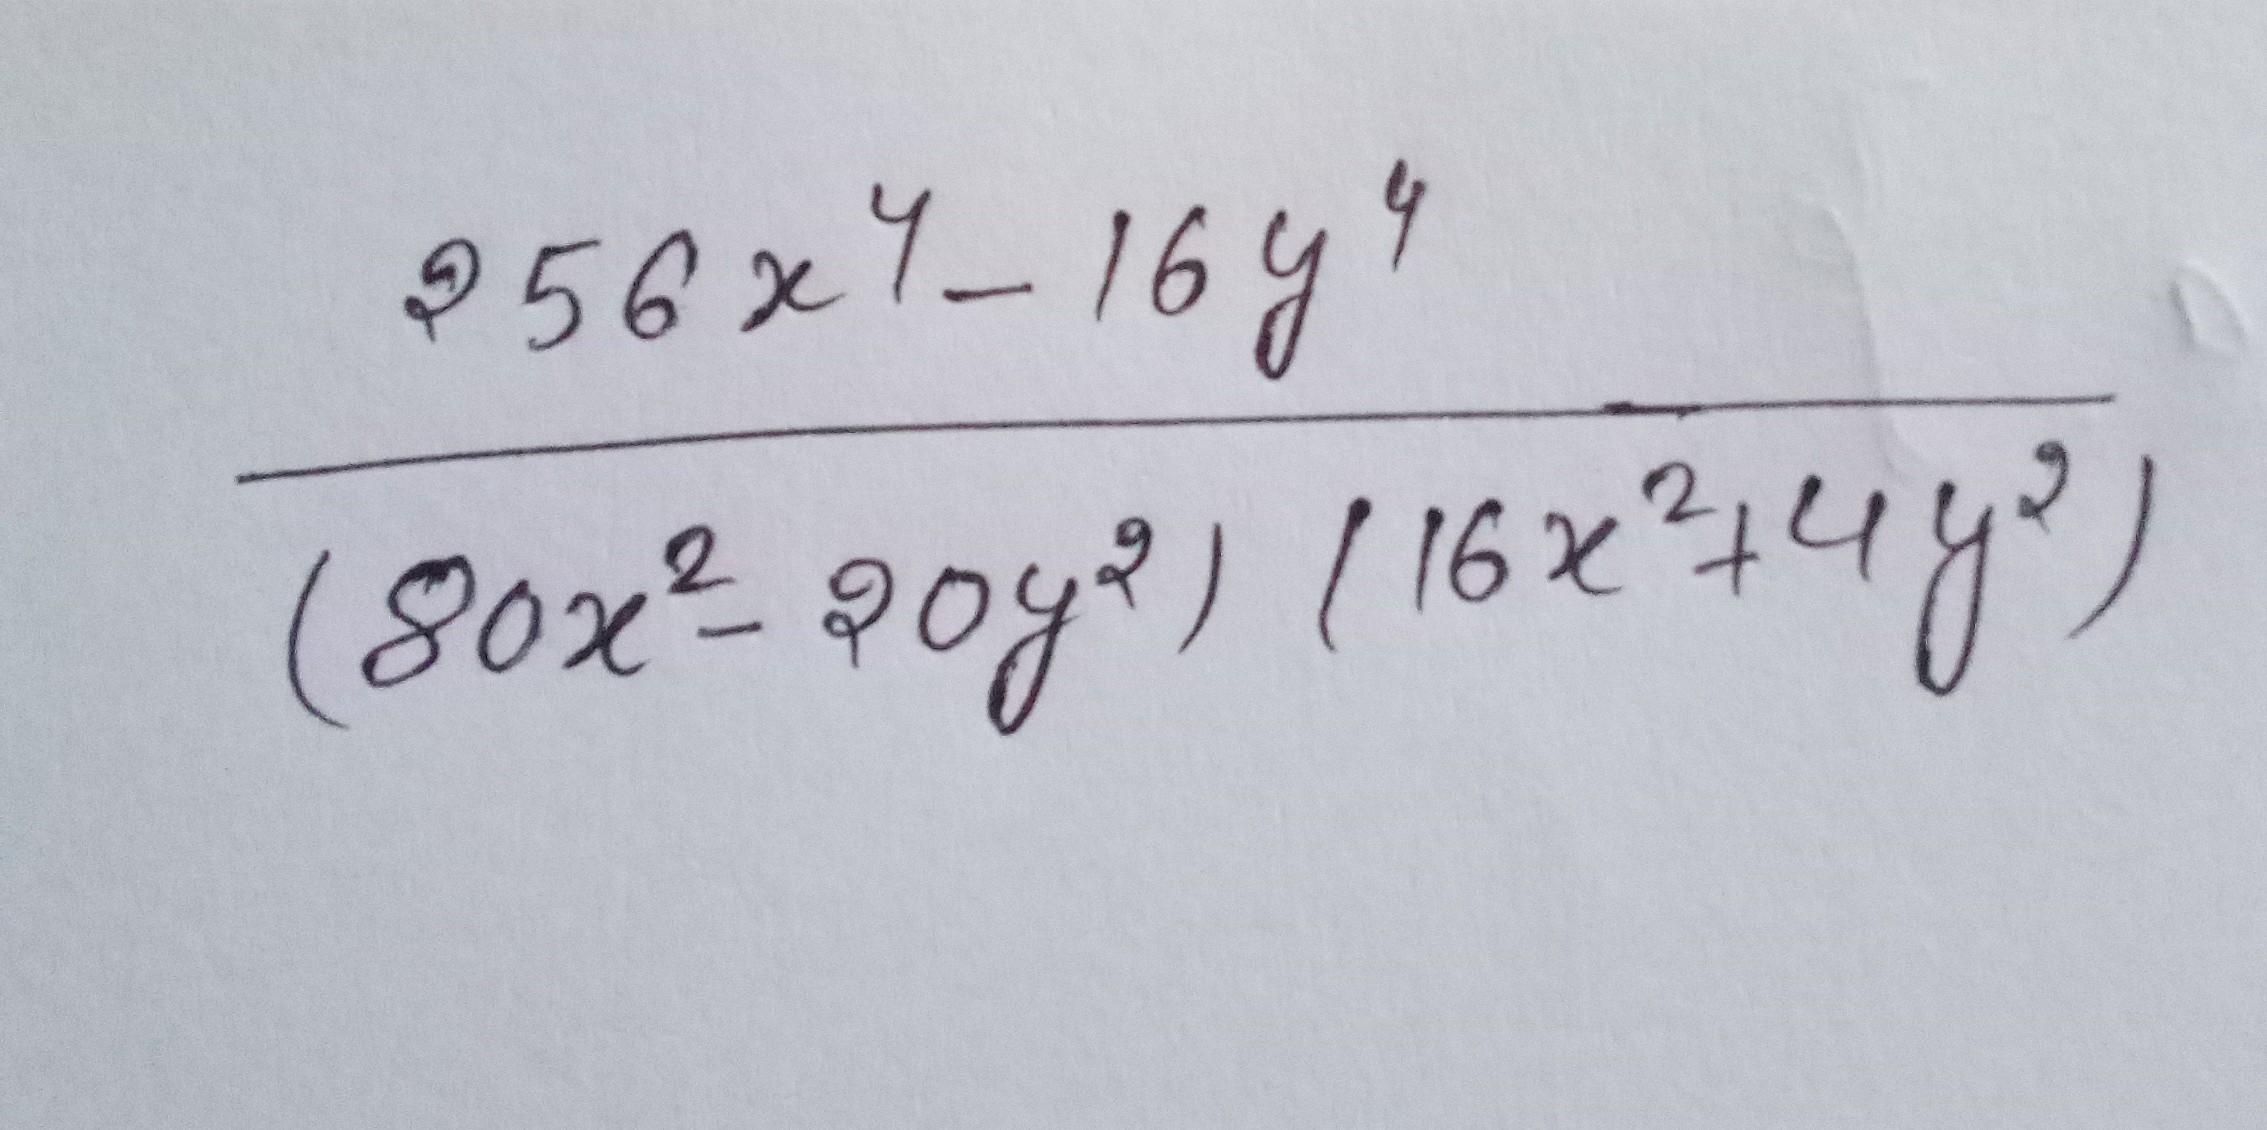 256x⁴ - 16y⁴
(80x² - 20y²) (16x² + 4y²)